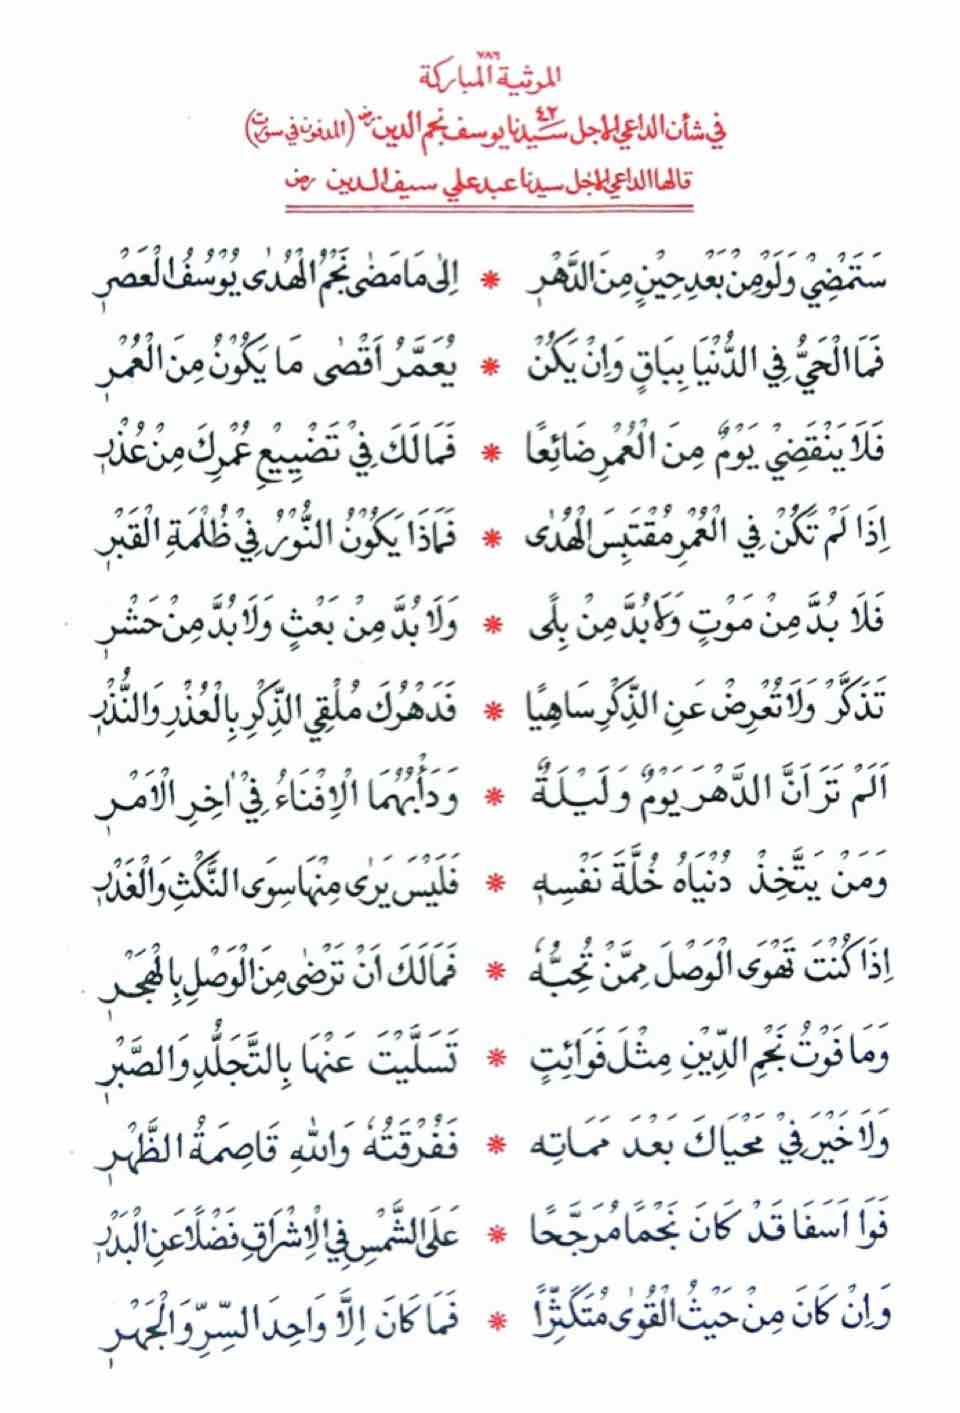 ٧٨٦
المرثية المباركة
في شأن الداعي الاجل ٤٢ سيدنا يوسف نجم الدين رض (المدفون في سورت)
قالها الداعي الاجل سيدنا عبد علي سيف الدين رض
سَتَمْضِيْ وَلَوْ مِنْ بَعْدِ حِيْنٍ مِنَ الدَّهْرِ * اِلٰى مَا مَضٰى نَجْمُ الْهُدٰى يُوْسُفُ الْعَصْرِ
فَمَا الْحَيُّ فِي الدُّنْيَا بِبَاقٍ وَاِنْ يَكُنْ * يُعَمَّرُ اَقْصٰى مَا يَكُوْنُ مِنَ الْعُمْرِ
فَلَا يَنْقَضِيْ يَوْمٌ مِنَ الْعُمْرِ ضَائِعًا * فَمَا لَكَ فِيْ تَضْيِيْعِ عُمْرِكَ مِنْ عُذْرِ
اِذَا لَمْ تَكُنْ فِي الْعُمْرِ مُقْتَبِسَ الْهُدٰى * فَمَاذَا يَكُوْنُ النُّوْرُ فِيْ ظُلْمَةِ الْقَبْرِ
فَلَا بُدَّ مِنْ مَوْتٍ وَلَا بُدَّ مِنْ بِلًى * وَلَا بُدَّ مِنْ بَعْثٍ وَلَا بُدَّ مِنْ حَشْرِ
تَذَكَّرْ وَلَا تُعْرِضْ عَنِ الذِّكْرِ سَاهِيًا * فَدَهْرُكَ مُلْقِي الذِّكْرِ بِالْعُذْرِ وَالنُّذْرِ
اَلَمْ تَرَ اَنَّ الدَّهْرَ يَوْمٌ وَلَيْلَةٌ * وَدَأْبُهُمَا الْاِفْنَاءُ فِيْ اٰخِرِ الْاَمْرِ
وَمَنْ يَتَّخِذْ دُنْيَاهُ خُلَّةَ نَفْسِهٖ * فَلَيْسَ يَرٰى مِنْهَا سِوَى النَّكْثِ وَالْغَدْرِ
اِذَا كُنْتَ تَهْوَى الْوَصْلَ مِمَّنْ تُحِبُّهٗ * فَمَا لَكَ اَنْ تَرْضٰى مِنَ الْوَصْلِ بِالْهَجْرِ
وَمَا فَوْتُ نَجْمِ الدِّيْنِ مِثْلَ فَوَائِتٍ * تَسَلَّيْتَ عَنْهَا بِالتَّجَلُّدِ وَالصَّبْرِ
وَلَا خَيْرَ فِيْ مَحْيَاكَ بَعْدَ مَمَاتِهٖ * فَفُرْقَتُهٗ وَاللهِ قَاصِمَةُ الظَّهْرِ
فَوَا اَسَفَا قَدْ كَانَ نَجْمًا مُرَجَّحًا * عَلَى الشَّمْسِ فِي الْاِشْرَاقِ فَضْلًا عَنِ الْبَدْرِ
وَاِنْ كَانَ مِنْ حَيْثُ الْقُوٰى مُتَكَثِّرًا * فَمَا كَانَ اِلَّا وَاحِدَ السِّرِّ وَالْجَهْرِ